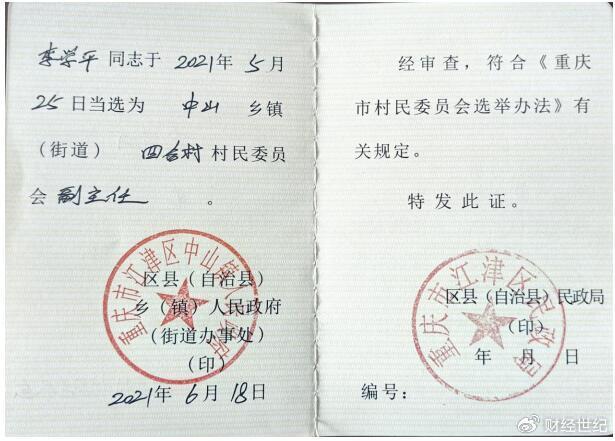 李学平同志于2021年5月
25日当选为 中山 乡镇
（街道） 四合村 村民委员
会 副主任 。
重庆市江津区中山镇人民政府
区县（自治县）
乡（镇）人民政府
（街道办事处）
（印）
2021年6月18日
经审查，符合《重庆
市村民委员会选举办法》有
关规定。
特发此证。
重庆市江津区民政局
区县（自治县）民政局
（印）
年 月 日
编号：
财经世纪